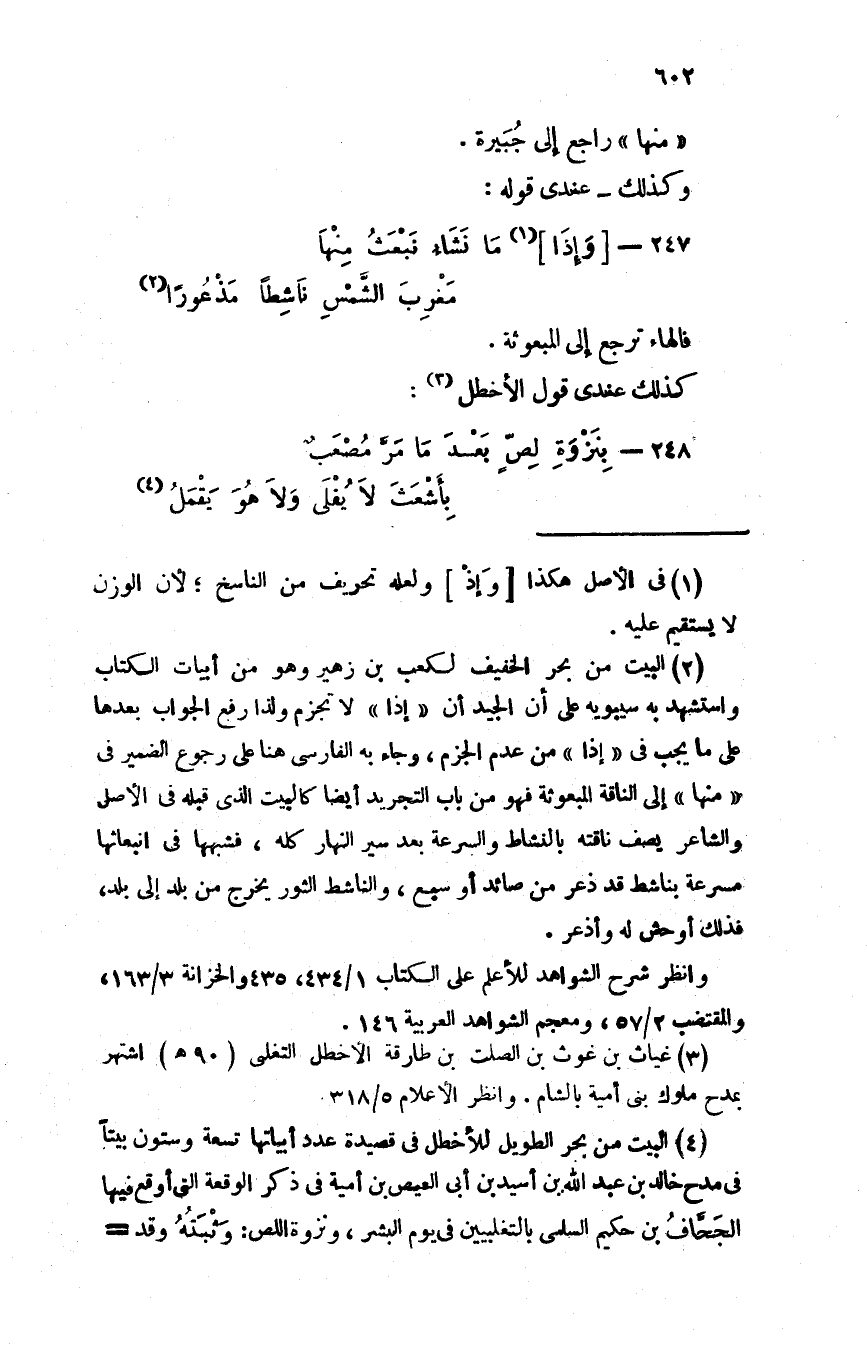 ٦٠٢
« منها » راجع إلى جُبَيرة .
وكذلك ــ عندى قوله :
٢٤٧ — [ وَإِذَا ](١) مَا نَشَاء نَبْعَثُ مِنْهَا
مَغْرِبَ الشَّمْسِ نَاشِطاً مَذْعُورًا(٢)
فالهاء ترجع إلى المبعوثة .
كذلك عندى قول الأخطل(٣) :
٢٤٨ — بِنَزْوَةِ لِصٍّ بَعْدَ مَا مَرَّ مُصْعَبٌ
بِأَشْعَثَ لاَ يُفْلَى وَلاَ هُوَ يَقْمَلُ(٤)
(١) فى الأصل هكذا [ وَإذْ ] ولعله تحريف من الناسخ ؛ لأن الوزن
لا يستقيم عليه .
(٢) البيت من بحر الخفيف لكعب بن زهير وهو من أبيات الكتاب
واستشهد به سيبويه على أن الجيد أن « إذا » لا تجزم ولذا رفع الجواب بعدها
على ما يجب فى « إذا » من عدم الجزم ، وجاء به الفارسى هنا على رجوع الضمير فى
« منها » إلى الناقة المبعوثة فهو من باب التجريد أيضا كالبيت الذى قبله فى الأصل
والشاعر يصف ناقته بالنشاط والسرعة بعد سير النهار كله ، فشبهها فى انبعاثها
مسرعة بناشط قد ذعر من صائد أو سبع ، والناشط الثور يخرج من بلد إلى بلد،
فذلك أوحش له وأذعر .
وانظر شرح الشواهد للأعلم على الكتاب ٤٣٤/١، ٤٣٥والخزانة ١٦٣/٣،
والمقتضب ٥٧/٢ ، ومعجم الشواهد العربية ١٤٦ .
(٣) غياث بن غوث بن الصلت بن طارقة الأخطل التغلبى ( ٩٠ ه‍ ) اشتهر
بمدح ملوك بنى أمية بالشام . وانظر الأعلام ٣١٨/٥
(٤) البيت من بحر الطويل للأخطل فى قصيدة عدد أبياتها تسعة وستون بيتاً
فى مدح خالد بن عبد الله بن أسيد بن أبى العيص بن أمية فى ذكر الوقعة التى أوقع فيها
الجَحَّافُ بن حكيم السلمى بالتغلبيين فى يوم البشر ، ونزوة اللص: وَثْبَتُهُ وقد =